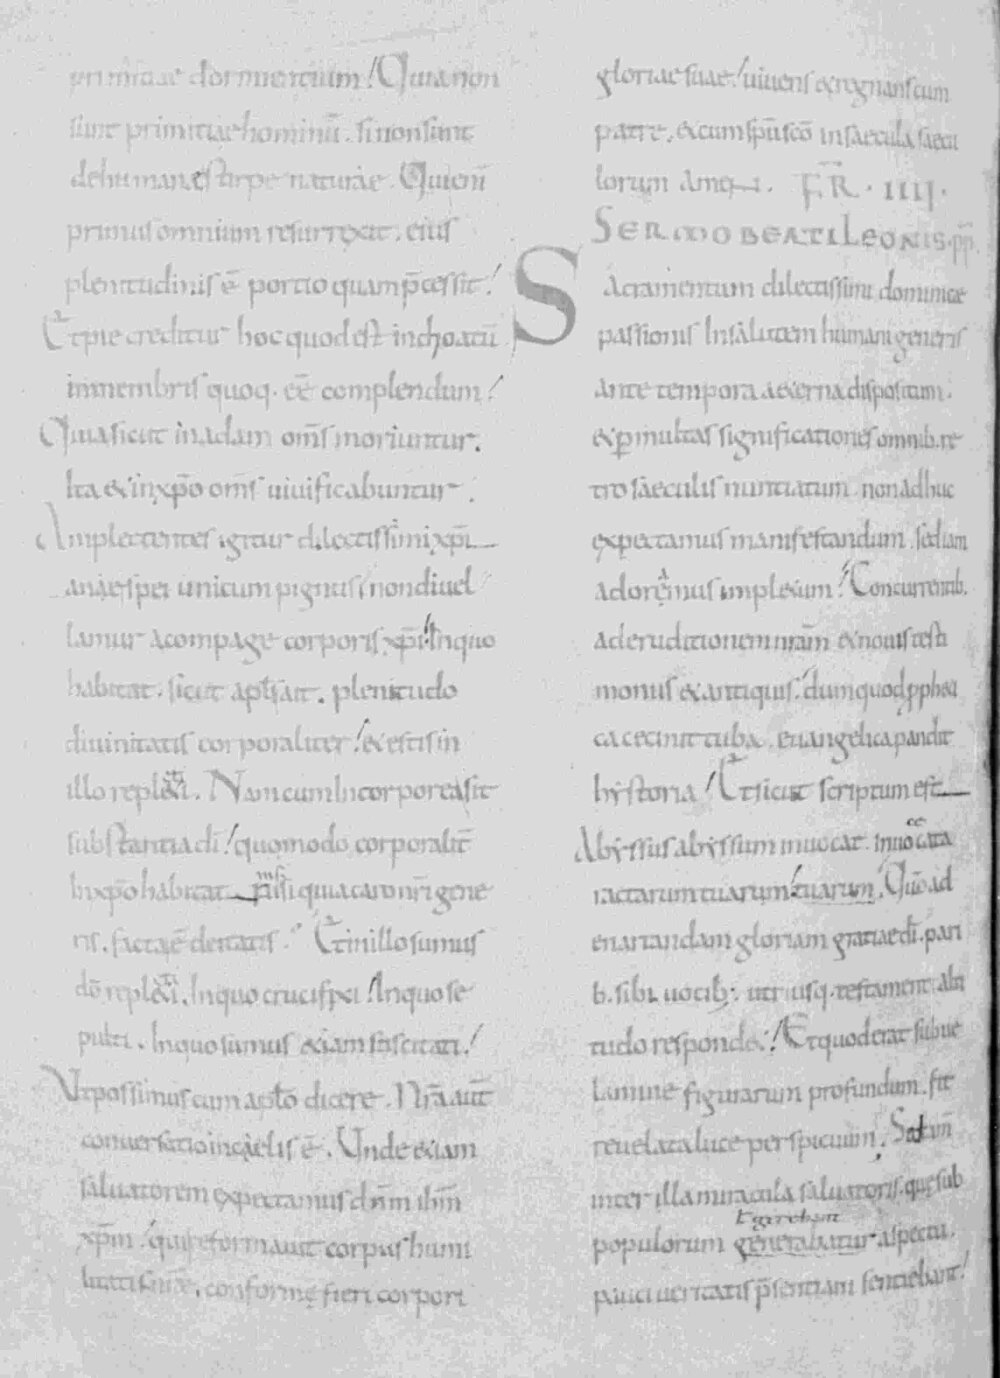 primitiae dormientium! Quia non
sunt primitiae hominū. si non sunt
de humanae stirpe naturae. Qui enī
primus omnium resurrexit. eius
plenitudinis ē portio quam p̄cessit!
Et pie creditur hoc quod est inchoatū
in membris quoq. eē complendum!
Quia sicut in adam om̄s moriuntur.
Ita & in xp̄o om̄s uiuificabuntur.
Amplectentes igitur dilectissimi xp̄i
anae spei unicum pignus! non diuel
lamur a compage corporis xp̄i! In quo
habitat. sicut apłs ait. plenitudo
diuinitatis corporaliter! & estis in
illo repl&i. Nam cum Incorporea sit
substantia dī! quomodo corporalit̄
In xp̄o habitat nisi quia caro nr̄i gene
ris. facta ē deitatis. Et in illo sumus
dō repl&i. In quo crucifixi! In quo se
pulti. In quo sumus &iam suscitati!
Vt possimus cum apło dicere. Nr̄a aut̄
conuersatio in caelis ē. Unde &iam
saluatorem expectamus dn̄m ih̄m
xp̄m! qui reformauit corpus humi
litatis nr̄ae. conforme fieri corpori
gloriae suae! uiuens & regnans cum
patre. & cum sp̄u sc̄o in saecula saecu
lorum Amen. F̄R̄. IIII.
SERMO BEATI LEONIS. pp̄
Sacramentum dilectissimi dominice
passionis In salutem humani generis
ante tempora aeterna dispositum.
& p multas significationes omnib. re
tro saeculis nuntiatum non adhuc
expectamus manifestandum. sed iam
adoremus impl&um! Concurrentib.
ad eruditionem nram̄ & nouis testi
moniis & antiquis! dum quod pph&i
ca cecinit tuba. euangelica pandit
hystoria! Et sicut scriptum est
Abyssus abyssum inuocat. in uoce cata
ractarum tuarum! tuarum. Quo ad
enarrandam gloriam gratiae dī. pari
b. sibi uocib; utriusq. testamenti alti
tudo respond&! Et quod erat sub ue
lamine figurarum profundum. fit
reuelata luce perspicuum. Sed cum
inter illa miracula saluatoris. quę sub
populorum generabatur aspectu.
pauci ueritatis p̄sentiam sentiebant!